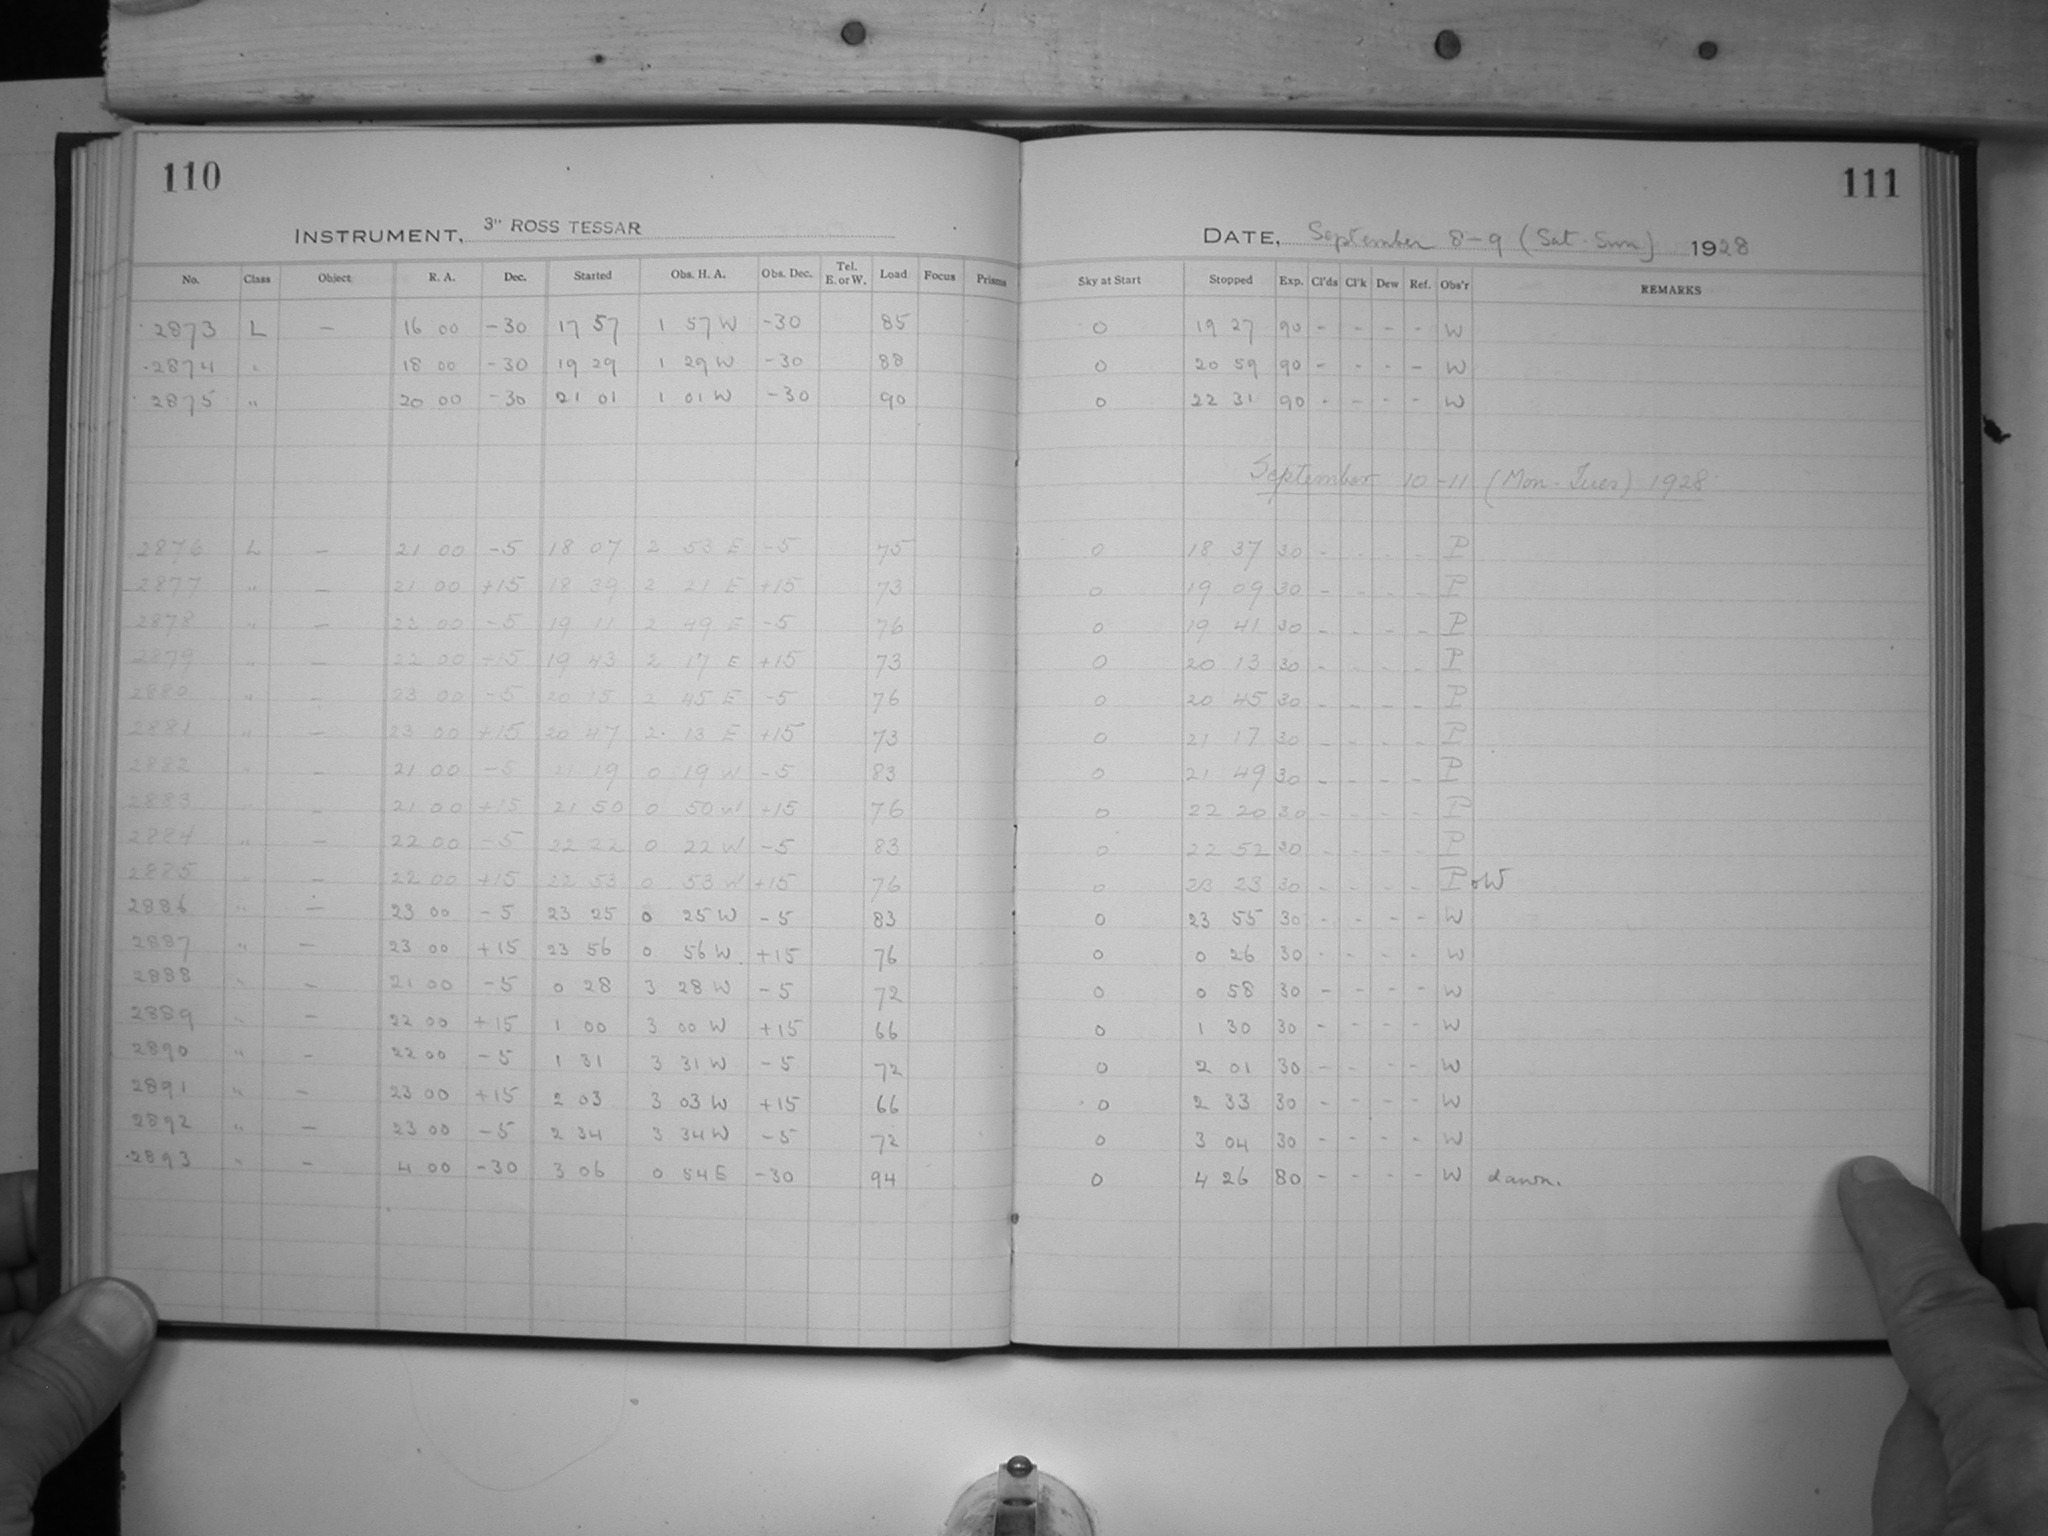 110
111
INSTRUMENT, 3" ROSS TESSAR
DATE, September 8-9 (Sat-Sun) 1928
No. Class Object R. A. Dec. Started Obs. H. A. Obs. Dec. Tel. E. or W. Load Focus Prisms Sky at Start Stopped Exp. Cl'ds Cl'k Dew Ref. Obs'r REMARKS
2873 L — 16 00 -30 17 57 1 57 W -30 85 0 19 27 90 - - - - W
2874 " 18 00 -30 19 29 1 29 W -30 88 0 20 59 90 - - - - W
2875 " 20 00 -30 21 01 1 01 W -30 90 0 22 31 90 - - - - W
September 10-11 (Mon-Tues) 1928
2876 L — 21 00 -5 18 07 2 53 E -5 75 0 18 37 30 - - - - P
2877 " — 21 00 +15 18 39 2 21 E +15 73 0 19 09 30 - - - - P
2878 " — 22 00 -5 19 11 2 49 E -5 76 0 19 41 30 - - - - P
2879 " — 22 00 +15 19 43 2 17 E +15 73 0 20 13 30 - - - - P
2880 " — 23 00 -5 20 15 2 45 E -5 76 0 20 45 30 - - - - P
2881 " — 23 00 +15 20 47 2 13 E +15 73 0 21 17 30 - - - - P
2882 " — 21 00 -5 21 19 0 19 W -5 83 0 21 49 30 - - - - P
2883 " — 21 00 +15 21 50 0 50 W +15 76 0 22 20 30 - - - - P
2884 " — 22 00 -5 22 22 0 22 W -5 83 0 22 52 30 - - - - P
2885 " — 22 00 +15 22 53 0 53 W +15 76 0 23 23 30 - - - - P & W
2886 " — 23 00 -5 23 25 0 25 W -5 83 0 23 55 30 - - - - W
2887 " — 23 00 +15 23 56 0 56 W +15 76 0 0 26 30 - - - - W
2888 " — 21 00 -5 0 28 3 28 W -5 72 0 0 58 30 - - - - W
2889 " — 22 00 +15 1 00 3 00 W +15 66 0 1 30 30 - - - - W
2890 " — 22 00 -5 1 31 3 31 W -5 72 0 2 01 30 - - - - W
2891 " — 23 00 +15 2 03 3 03 W +15 66 0 2 33 30 - - - - W
2892 " — 23 00 -5 2 34 3 34 W -5 72 0 3 04 30 - - - - W
2893 " — 4 00 -30 3 06 0 54 E -30 94 0 4 26 80 - - - - W dawn.